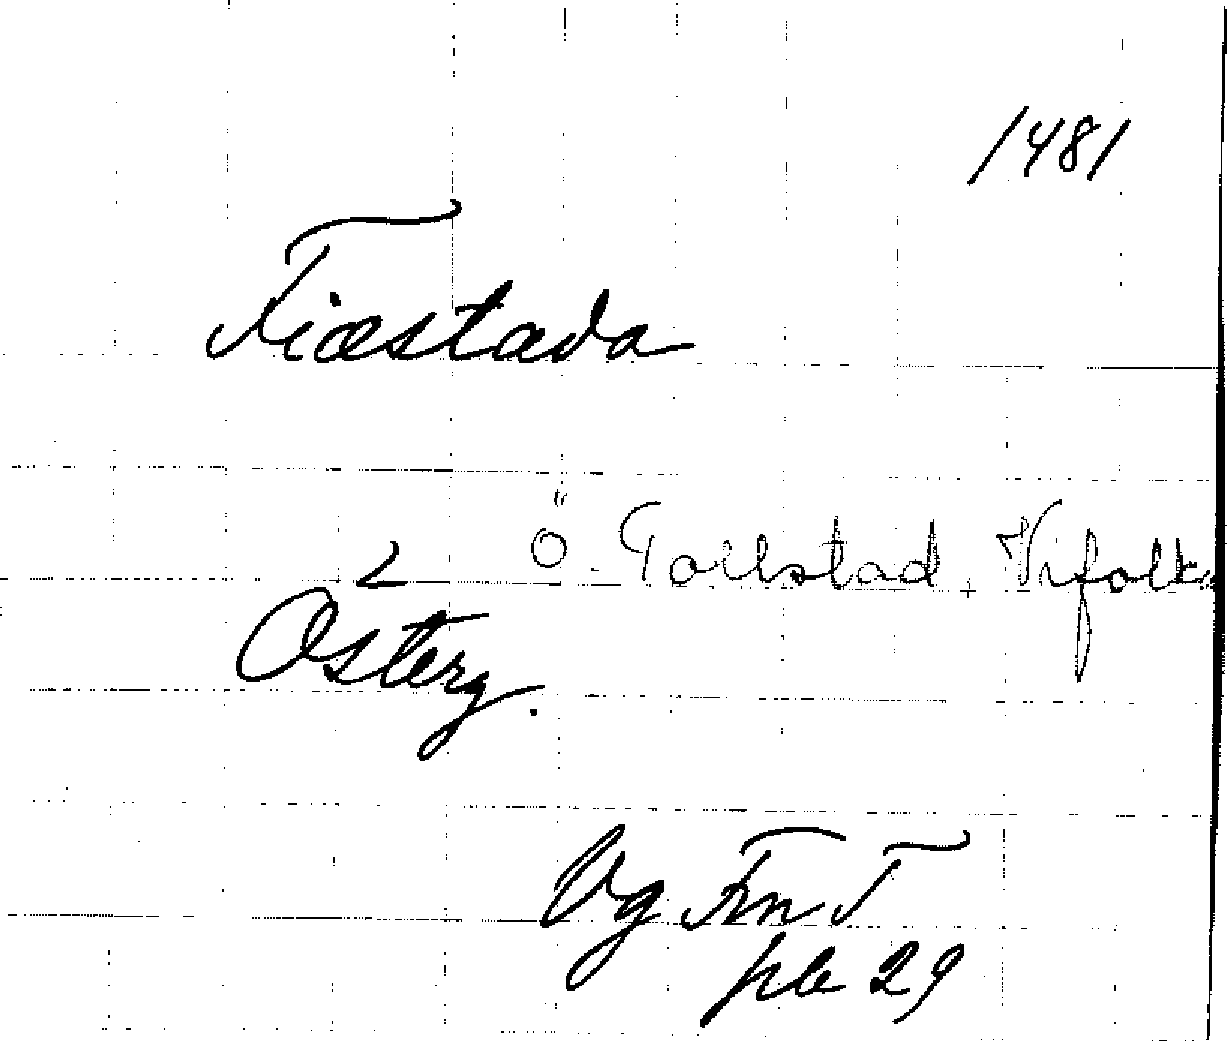 1481
Tiæstada
Ö. Tollstad, Vifolk
Österg.
Vg Fm T